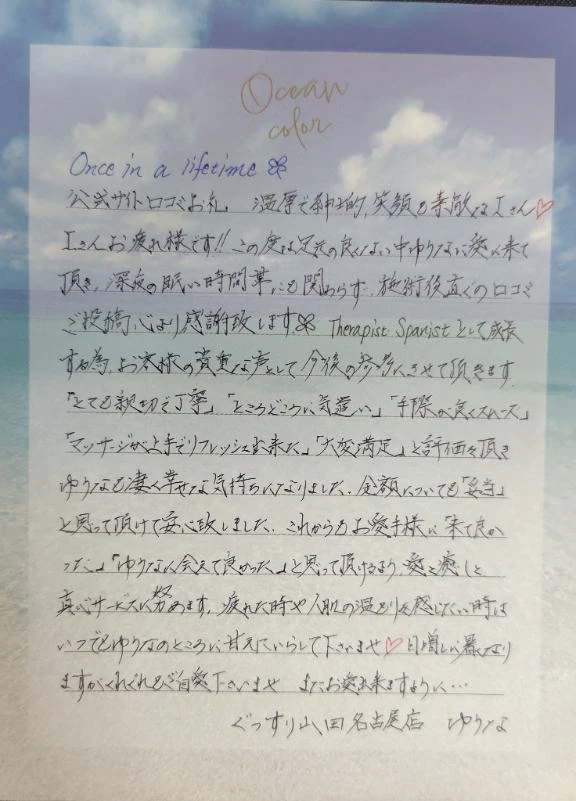 Ocean
color
Once in a lifetime
公式サイト口コミお礼 温厚で紳士的、笑顔も素敵なIさん♡
Iさんお疲れ様です!! この度は足元の良くない中ゆりなに逢いに来て
頂き、深夜の眠い時間帯にも関わらず、施術後直ぐの口コミ
ご投稿、心より感謝致します Therapist Spanistとして成長
する為、お客様の貴重な声として今後の参考にさせて頂きます.
「とても親切で丁寧」「ところどころに気遣い」「手際が良くスムーズ」
「マッサージが上手でリフレッシュ出来た」「大変満足」と評価を頂き
ゆりなも凄く幸せな気持ちになりました. 金額についても「妥当」
と思って頂けて安心致しました. これからもお客様に「来て良か
った」「ゆりなに会えて良かった」と思って頂けるよう、愛と癒しと
真心サービスに努めます. 疲れた時や人肌の温もりを感じたい時は
いつでもゆりなのところに甘えにいらして下さいませ♡ 日増しに暑くなり
ますがくれぐれもご自愛下さいませ またお逢い出来ますように…
ぐっすり山田 名古屋店 ゆりな